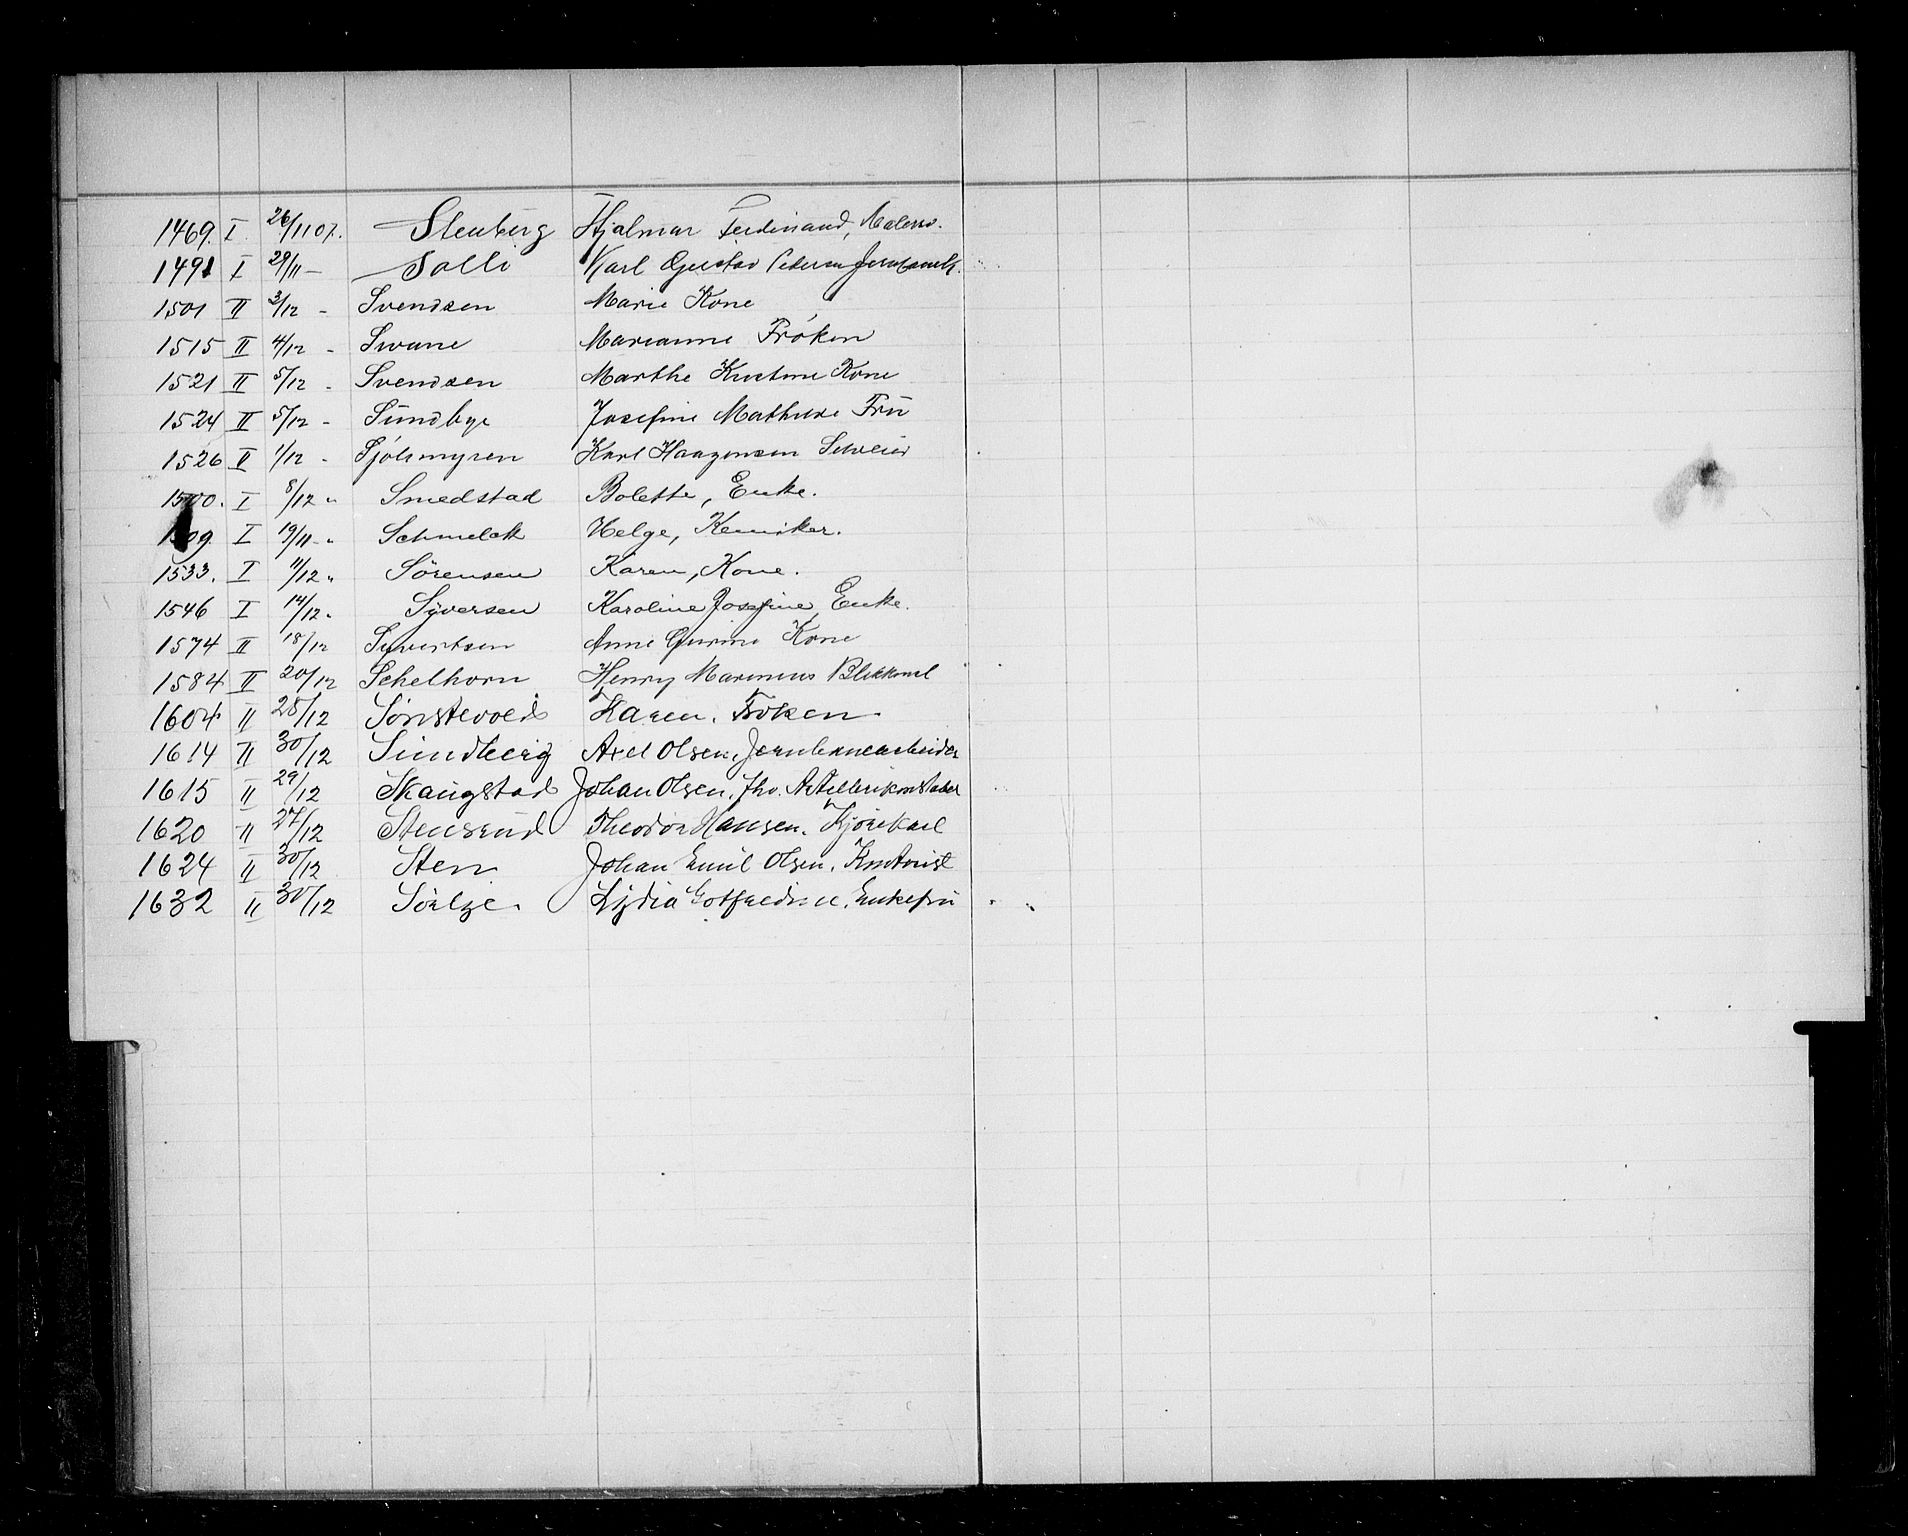 1469. I. 26/11 07. Stenberg Hjalmar Ferdinand, Malersv.
1491 I 29/11 – Solli Karl Gustav Pedersen Jernbanek.
1501 II 3/12 - Svendsen Marie Kone
1515 II 4/12 - Svane Marianne Frøken
1521 II 5/12 - Svendsen Marthe Kristine Kone
1524 II 5/12 - Sundbye Josefine Mathilde Fru
1526 II 1/12 - Sjølsmyren Karl Haagensen
1500. I 8/12 " Smedstad Bolette, Enke.
1509. I 19/11 - " Schmelck Helge, Kemiker.
1533. I 11/12 " Sörensen Karen, Kone.
1546 I 14/12 " Syversen Karoline Josefine, Enke.
1574 II 18/12 Syvertsen Anne Gurine Kone
1584 II 20/12 Schelhorn Henry Marinius Blikkensl
1604 II 28/12 Sönstevold Karen. Fröken.
1614 II 30/12 Sundberg Axel Olsen. Jernbanearbeider
1615 II 29/12 Skaugstad Johan Olsen. fhv. Artillerikonstabel
1620 II 27/12 Stensrud Theodor Hansen. Kjörekarl
1624 II 30/12 Sten Johan Emil Olsen. Kontorist
1632 II 30/12 Sörlye. Lydia Gotfredine. Enkefru